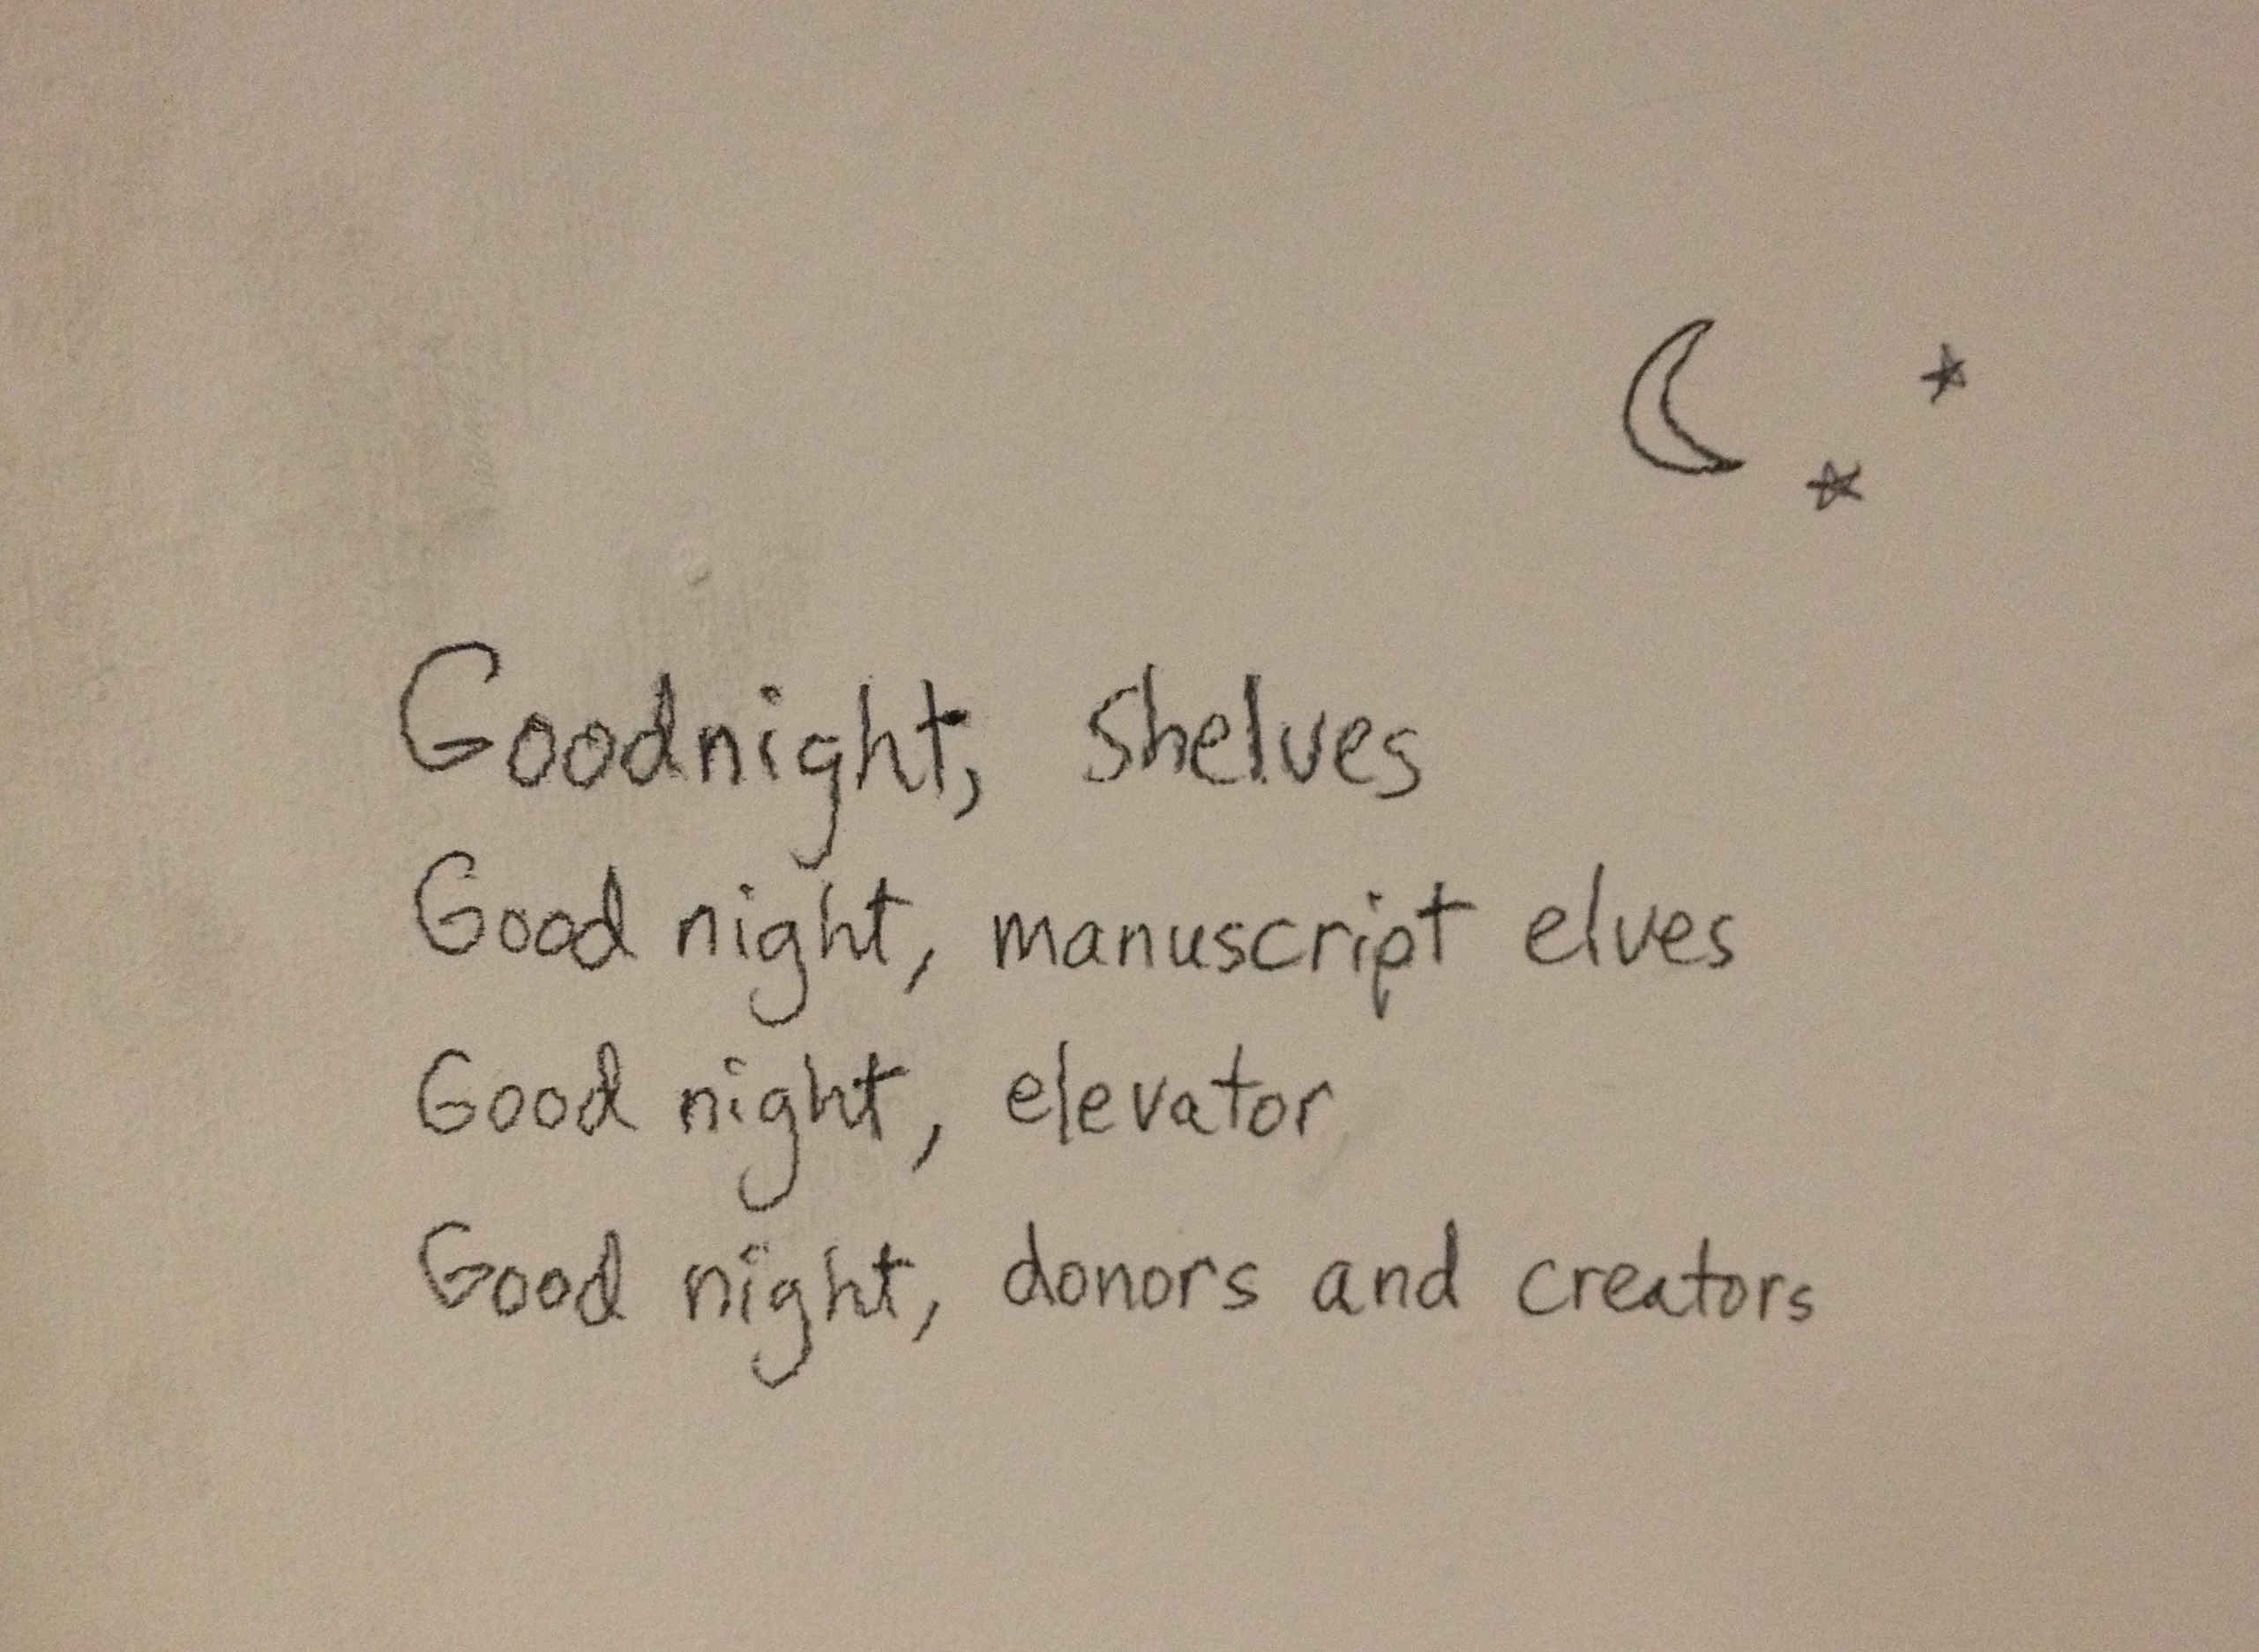 Goodnight, shelves
Good night, manuscript elves
Good night, elevator
Good night, donors and creators